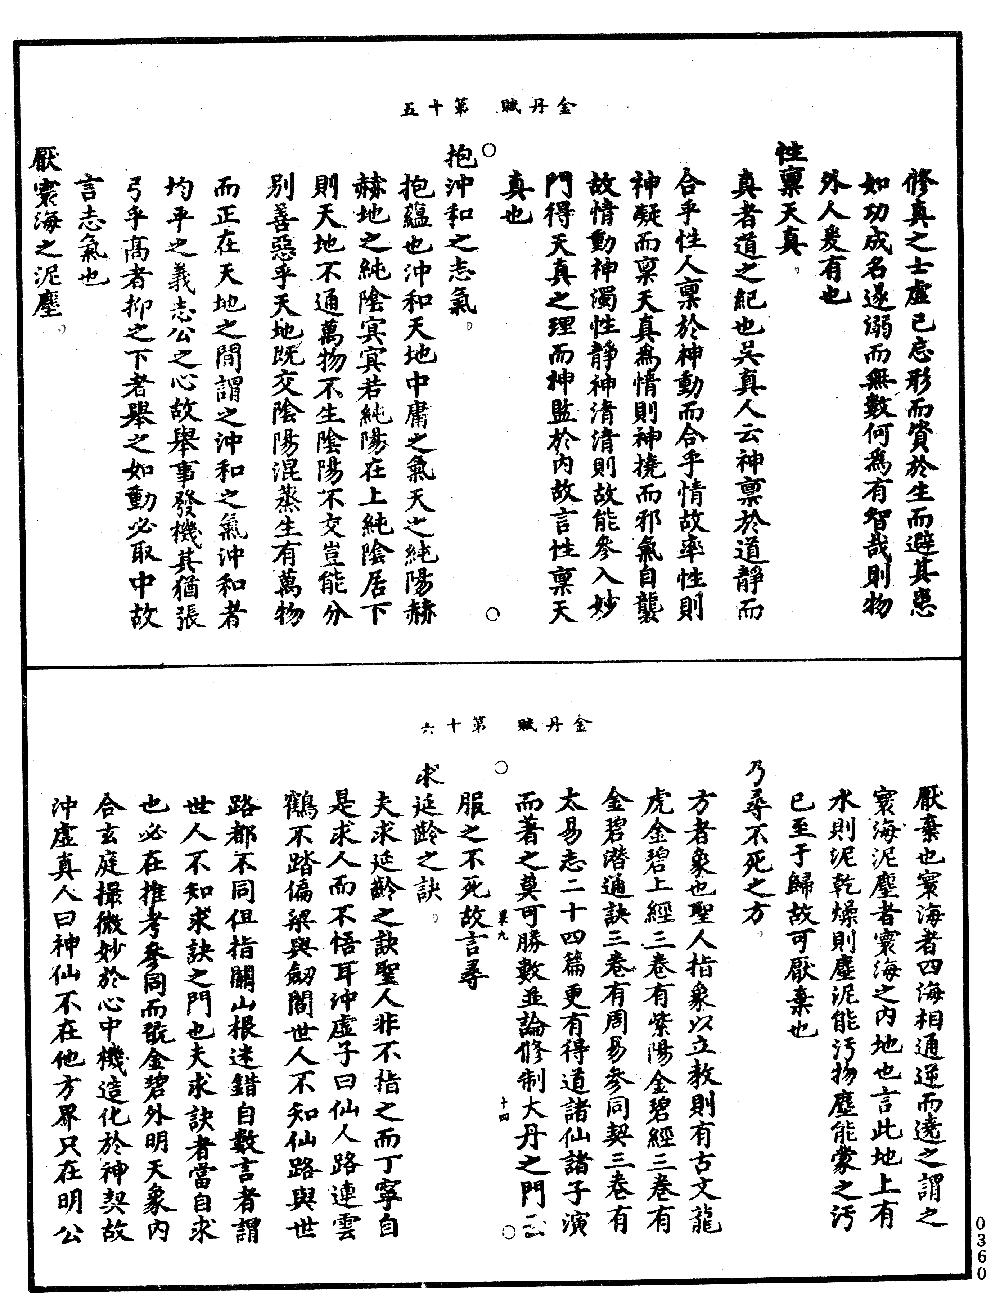 金丹賦　第十五
修真之士虛己忘形而賞於生而避其患
如功成名遂溺而無數何為有智哉則物
外人爰有也
性稟天真。
真者道之紀也吳真人云神稟於道靜而
合乎性人稟於神動而合乎情故率性則
神凝而稟天真為情則神撓而邪氣自襲
故情動神濁性靜神清清則故能參入妙
門得天真之理而神監於內故言性稟天
真也
抱沖和之志氣。
抱蘊也沖和天地中庸之氣天之純陽赫
赫地之純陰冥冥若純陽在上純陰居下
則天地不通萬物不生陰陽不交豈能分
別善惡乎天地既交陰陽混蒸生有萬物
而正在天地之間謂之沖和之氣沖和者
均平之義志公之心故舉事發機其猶張
弓乎高者抑之下者舉之如動必取中故
言志氣也
厭寰海之泥塵。
金丹賦　第十六
厭棄也寰海者四海相通逆而遶之謂之
寰海泥塵者寰海之內地也言此地上有
水則泥乾燥則塵泥能污物塵能蒙之污
已至于歸故可厭棄也
乃尋不死之方。
方者象也聖人指象以立教則有古文龍
虎金碧上經三卷有紫陽金碧經三卷有
金碧潛通訣三卷有周易參同契三卷有
太易志二十四篇更有得道諸仙諸子演
而著之莫可勝數並論修制大丹之門云
菓九　十四
服之不死故言尋
求延齡之訣。
夫求延齡之訣聖人非不指之而丁寧自
是求人而不悟耳沖虛子曰仙人路連雲
鶴不踏偏梁與劒閣世人不知仙路與世
路都不同但指關山根迷錯自數言者謂
世人不知求訣之門也夫求訣者當自求
也必在推考參同而翫金碧外明天象內
合玄庭撮微妙於心中機造化於神契故
沖虛真人曰神仙不在他方界只在明公
0360